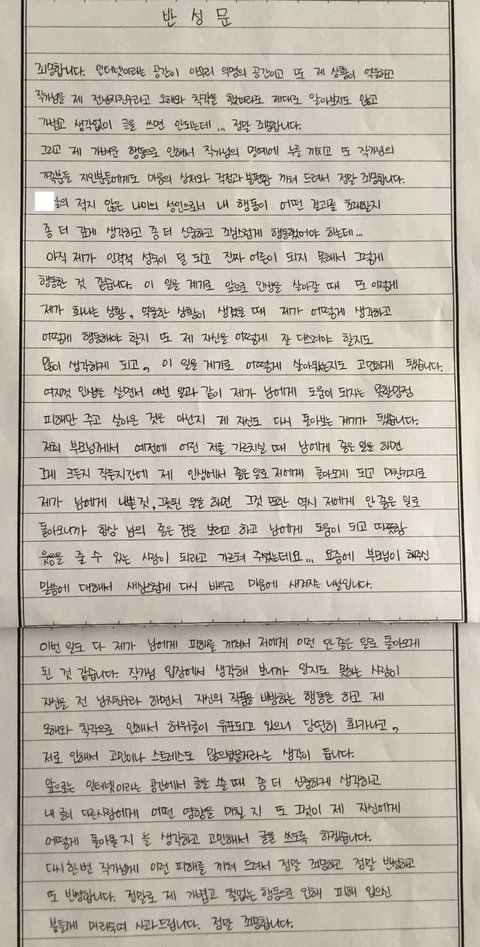 반성문
죄송합니다. 인터넷이라는 공간이 아무리 익명의 공간이고 또 제 상황이 억울하고
작가님을 제 전남자친구라고 오해와 착각을 했더라도 제대로 알아보지도 않고
가볍고 생각없이 글을 쓰면 안되는데... 정말 죄송합니다.
그리고 제 가벼운 행동으로 인해서 작가님의 명예에 누를 끼치고 또 작가님의
가족분들 지인분들에게도 마음의 상처와 걱정과 불편함 끼쳐 드려서 정말 죄송합니다.
살의 적지 않은 나이의 성인으로서 내 행동이 어떤 결과를 초래할지
좀 더 깊게 생각하고 좀 더 신중하고 조심스럽게 행동했어야 하는데...
아직 제가 인격적 성숙이 덜 되고 진짜 어른이 되지 못해서 그렇게
행동한 것 같습니다. 이 일을 계기로 앞으로 인생을 살아갈 때 또 이렇게
제가 화나는 상황, 억울한 상황이 생겼을 때 제가 어떻게 생각하고
어떻게 행동해야 할지 또 제 자신을 어떻게 잘 다스려야 할지도
많이 생각하게 되고, 이 일을 계기로 어떻게 살아왔는지도 고민하게 됐습니다.
여지껏 인생을 살면서 이번 일과 같이 제가 남에게 도움이 되지는 못할망정
피해만 주고 살아온 것은 아닌지 제 자신도 다시 돌아보는 계기가 됐습니다.
저희 부모님께서 예전에 어린 저를 가르치실 때 남에게 좋은 일을 하면
그게 크든지 작든지간에 제 인생에서 좋은 일로 저에게 돌아오게 되고 마찬가지로
제가 남에게 나쁜 것, 그릇된 일을 하면 그것 또한 역시 저에게 안 좋은 일로
돌아오니까 항상 남의 좋은 점을 보려고 하고 남에게 도움이 되고 따뜻함
웃음을 줄 수 있는 사람이 되라고 가르쳐 주셨는데요... 요즘에 부모님이 해주신
말씀에 대해서 새삼스럽게 다시 배우고 마음에 새겨지는 나날입니다.
이번 일도 다 제가 남에게 피해를 끼쳐서 저에게 이런 안 좋은 일로 돌아오게
된 것 같습니다. 작가님 입장에서 생각해 보니까 알지도 못하는 사람이
자신을 전 남자친구라 하면서 자신의 작품을 비방하는 행동을 하고 제
오해와 착각으로 인해서 허위글이 유포되고 있으니 당연히 화가나고,
저로 인해서 고민이나 스트레스도 많으셨을거라는 생각이 듭니다.
앞으로는 인터넷이라는 공간에서 글을 쓸 때 좀 더 신중하게 생각하고
내 글이 다른사람에게 어떤 영향을 미칠 지 또 그것이 제 자신에게
어떻게 돌아올 지 늘 생각하고 고민해서 글을 쓰도록 하겠습니다.
다시 한번 작가님께 이런 피해를 끼쳐 드려서 정말 죄송하고 정말 반성하고
또 반성합니다. 정말로 제 가볍고 철없는 행동으로 인해 피해 입으신
분들께 머리숙여 사과드립니다. 정말 죄송합니다.